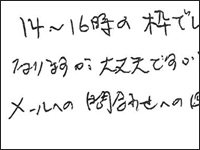 14～16時の枠でし
なりますが大丈夫ですか
メールへの問合わせへの回